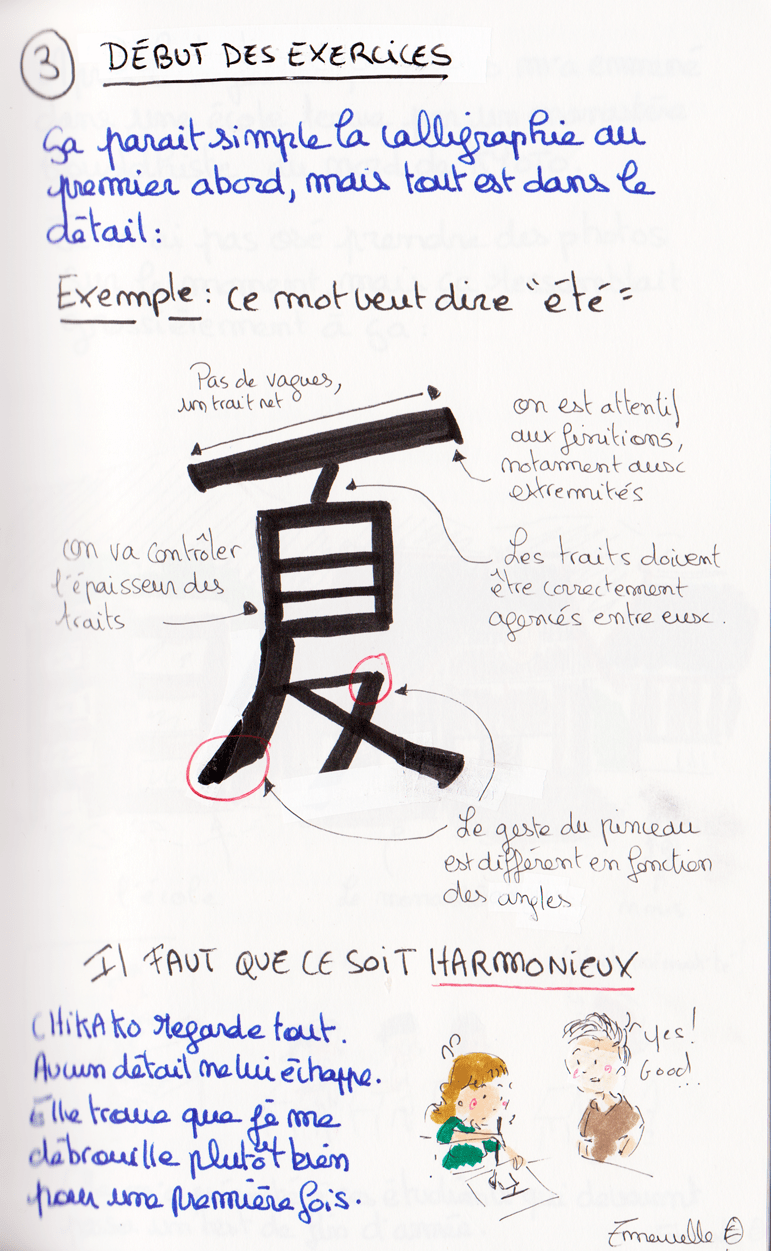 3 DÉBUT DES EXERCICES
Ça parait simple la calligraphie au
premier abord, mais tout est dans le
détail :
Exemple : ce mot veut dire "été"
Pas de vagues,
un trait net
on est attentif
aux finitions,
notamment aux
extremités
夏
on va contrôler
l'épaisseur des
traits
Les traits doivent
être correctement
agencés entre eux.
Le geste du pinceau
est différent en fonction
des angles
Il FAUT QUE CE SOIT HARMONIEUX
CHIKAKO regarde tout.
Aucun détail ne lui échappe.
Elle trouve que je me
débrouille plutôt bien
pour une première fois.
Yes!
Good...
Emmanuelle